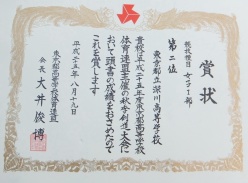 賞状
競技種目 女子I部
第二位
東京都立深川高等学校
貴校は平成二十五年度東京都高等学校
体育連盟主催の秋季剣道大会に
おいて頭書の成績をおさめたので
これを賞します
平成二十五年八月十九日
東京都高等学校体育連盟
会長 大井俊博